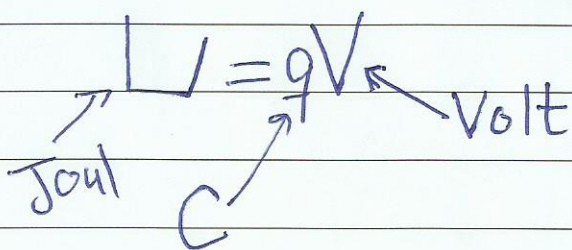 U = qV
Volt
Joul
C